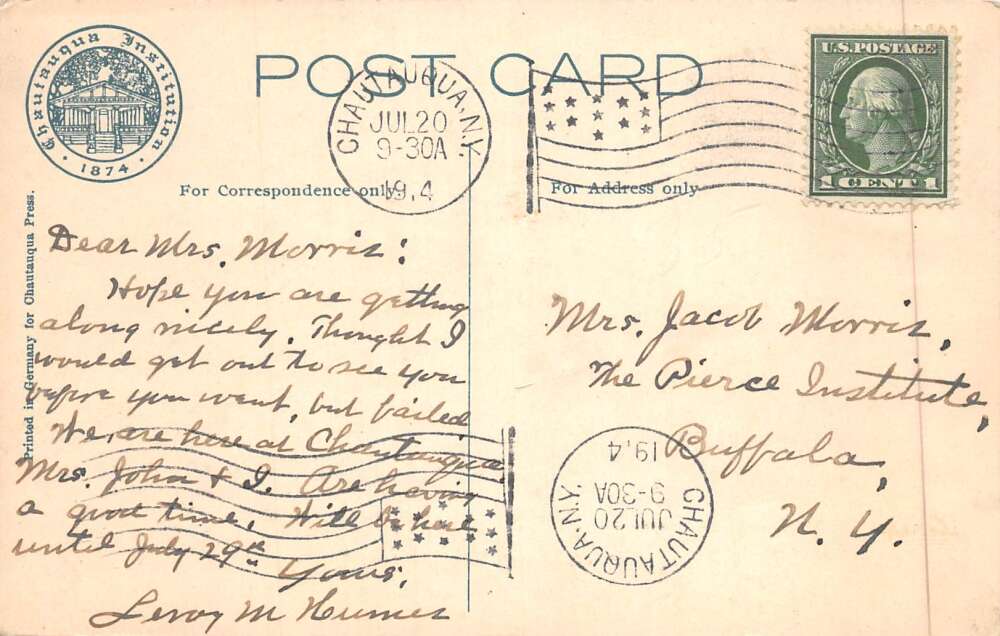 Chautauqua Institution
· 1874 ·
POST CARD
CHAUTAUQUA, N.Y.
JUL 20
9-30A
19.4
U.S. POSTAGE
1 CENT 1
For Correspondence only
For Address only
Printed in Germany for Chautauqua Press.
Dear Mrs. Morris:
Hope you are getting
along nicely. Thought I
would get out to see you
before you went, but failed
We are here at Chautauqua
Mrs. John & I. Are having
a good time. Will be here
until July 29th
Yours,
Leroy M Humes
Mrs. Jacob Morris,
The Pierce Institute,
Buffalo,
N. Y.
CHAUTAUQUA, N.Y.
JUL 20
9-30A
19.4